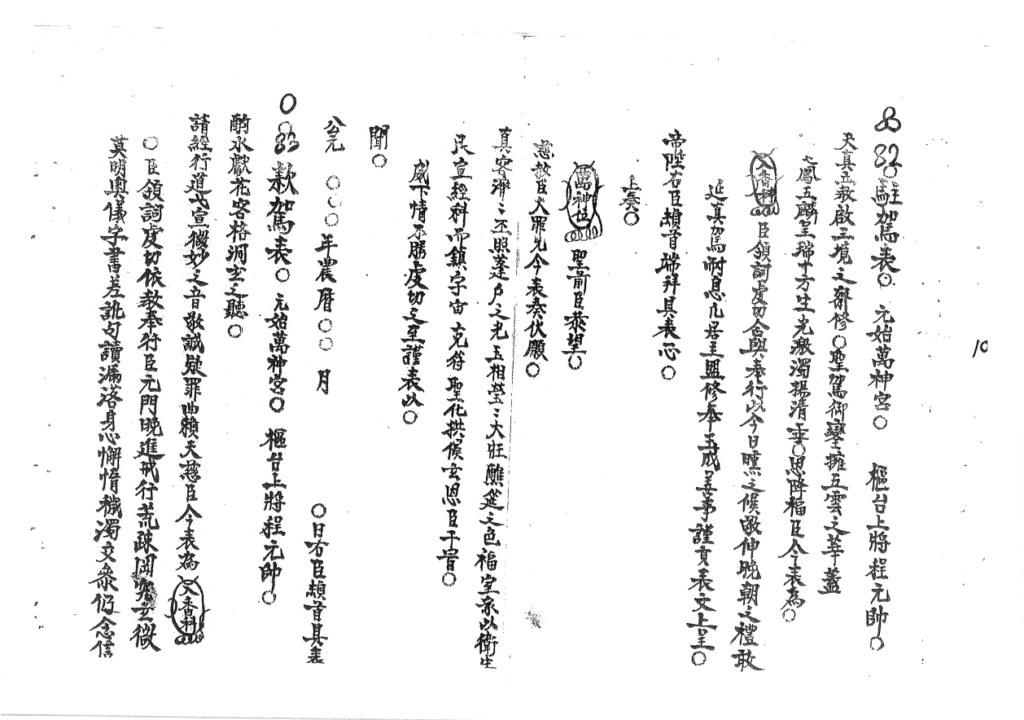 82○駐駕表○ 元始萬神宮○ 樞台上將程元帥○
天真立教啟三境之齋修○聖駕御鑾擁五雲之華蓋
七鳳五麟呈瑞十方生光激濁揚清垂○恩降福臣今表為○
又香科 臣領詞虔切合與奉行以今日曛之候敬伸晚朝之禮敢
延真駕耐息几居主盟修奉玉成善事謹貢表文上呈○
帝陛右臣頓首端拜具表心○
上奏○
萬神位 聖前臣恭望○
慈赦臣夫罪允今表奏伏願○
真容濟々丕照蓬戶之光玉相瑩々大壯醮筵之色福室家以衛生
民宣經科而鎮宇宙克符聖化拱侯玄恩臣干冒○
威下情不勝虔切之至謹表以○
聞○
公元 ○○○年農曆○○月 ○日右臣頓首具表
○83款駕表○ 元始萬神宮○ 樞台上將程元帥○
酌水獻花容格洞玄之聽○
請經行道弍宣微妙之音敬誠疑罪曲賴天慈臣今表為 又香科
○臣領詞虔切依教奉行臣元門晚進戒行荒疎罔 玄微
莫明奧儀字書差訛句讀漏落身心懈惰穢濁交參仍念信
10